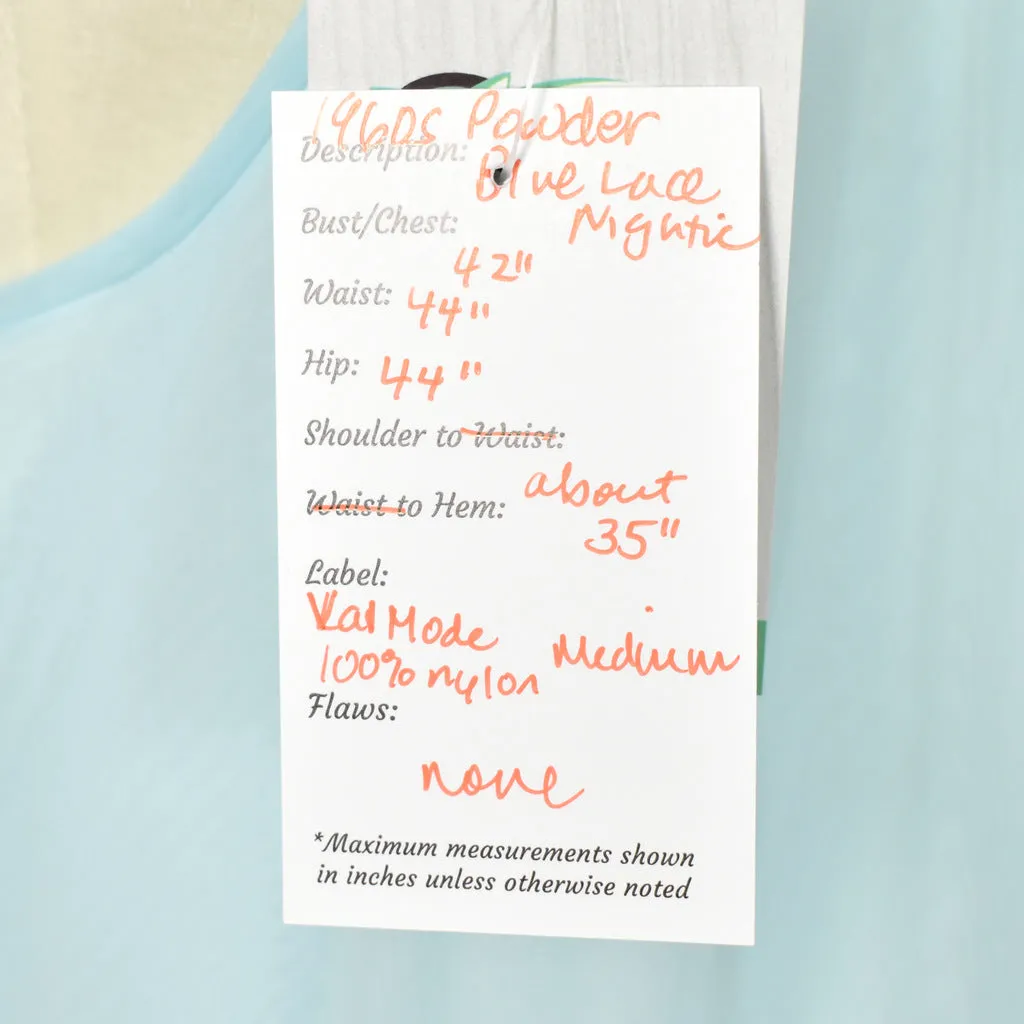 1960s Powder
Description:
Blue Lace
Bust/Chest:
Nightie
42"
Waist: 44"
Hip: 44"
Shoulder to Waist:
about
Waist to Hem:
35"
Label:
Val Mode
Medium
100% nylon
Flaws:
none
*Maximum measurements shown
in inches unless otherwise noted